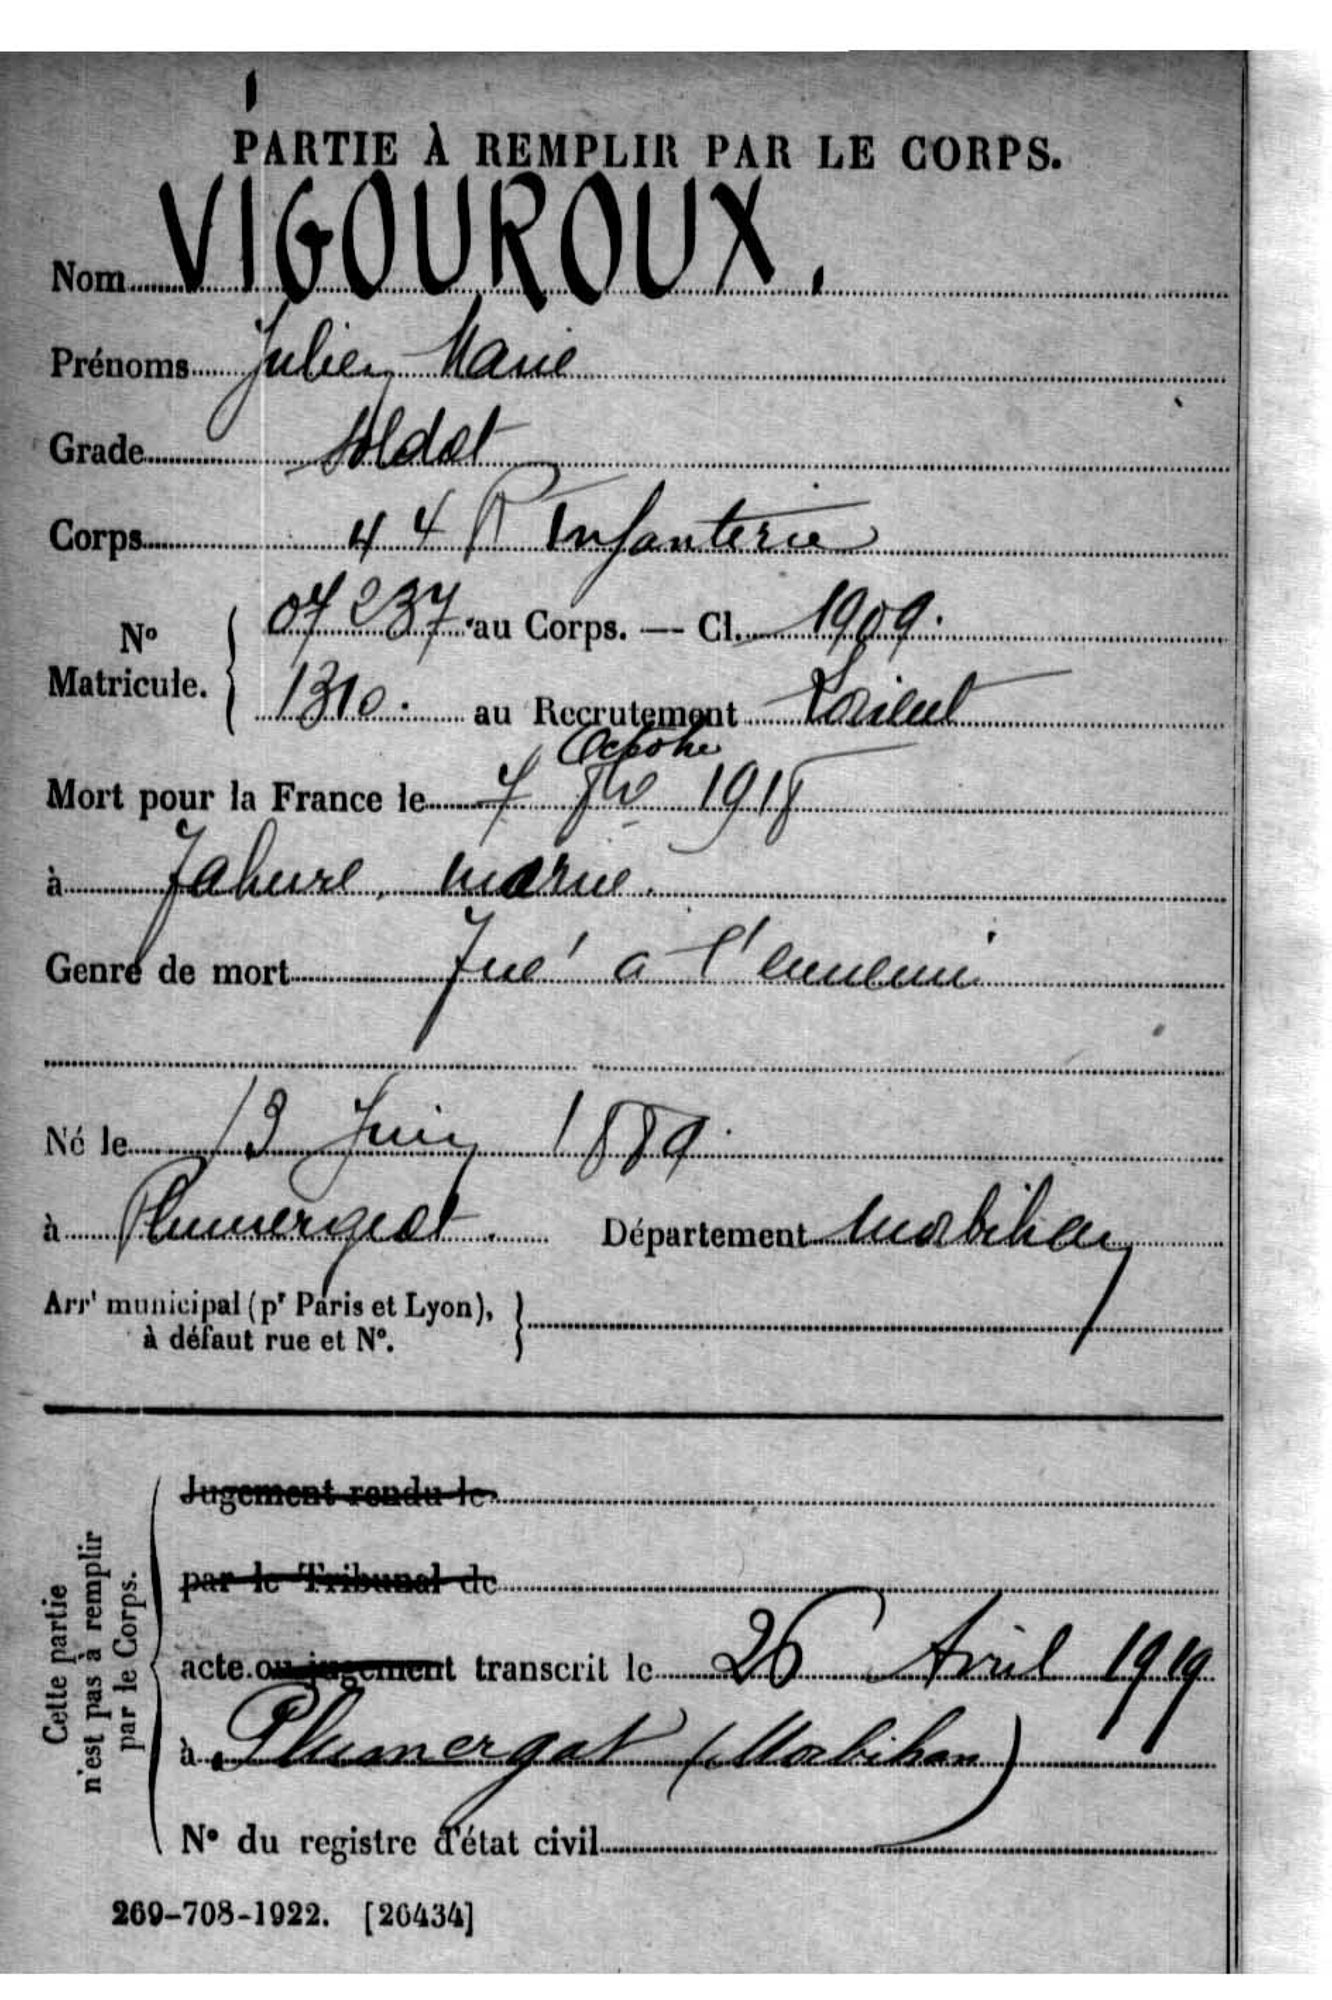 PARTIE À REMPLIR PAR LE CORPS.
Nom VIGOUROUX.
Prénoms Julien Marie
Grade Soldat
Corps 44 R Infanterie
N° Matricule. { 07237 au Corps. — Cl. 1909.
1310. au Recrutement Lorient
Octobre
Mort pour la France le 7 1918
à Tahure, Marne.
Genre de mort Tué à l'ennemi
Né le 13 Juin 1889.
à Plumergat. Département Morbihan
Arrt municipal (pr Paris et Lyon), }
à défaut rue et N°.
Cette partie
n'est pas à remplir
par le Corps.
Jugement rendu le
par le Tribunal de
acte ou jugement transcrit le 26 Avril 1919
à Plumergat (Morbihan)
N° du registre d'état civil
269-708-1922. [26434]